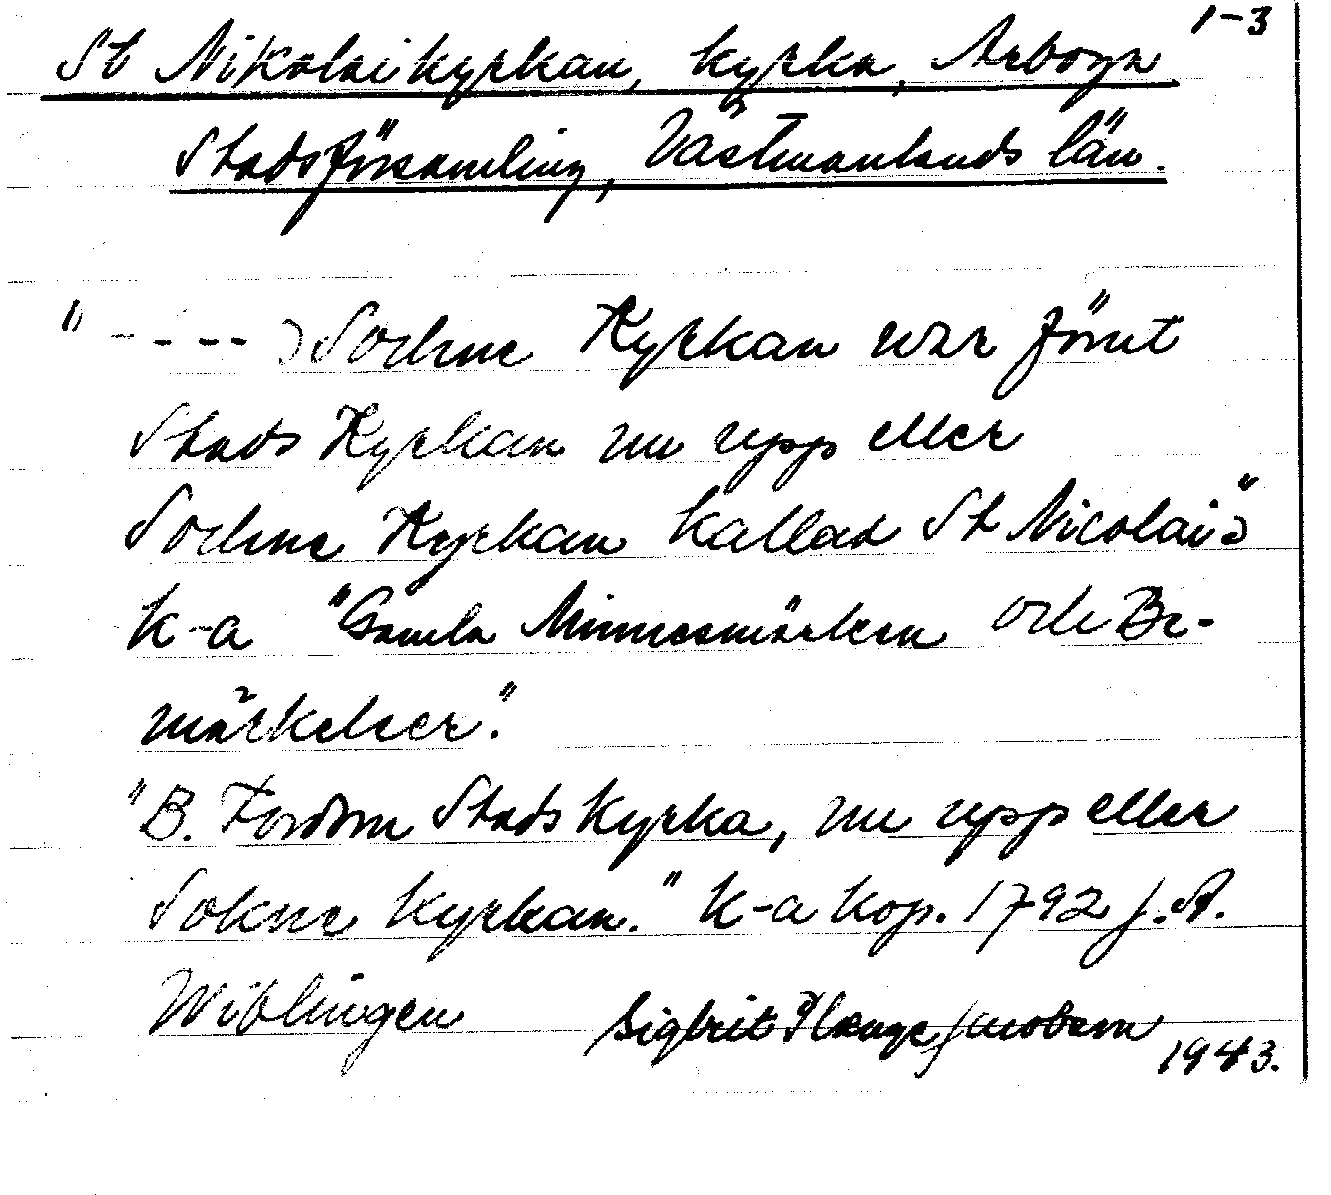 1-3
St Nikolaikyrkan, kyrka, Arboga
Stadsförsamling, Västmanlands län.
"- - - - -) Sochne Kyrkan war förut
Stads Kyrkan nu upp eller
Sochne Kyrkan kallad St Nicolai"
k-a "Gamla Minnesmärken och Be-
märkelser."
"B. Fordom Stads Kyrka, nu upp eller
Sokne kyrkan." k-a kop. 1792 f. A.
Wiblingen
Sigbrit Plænge Jacobson
1943.